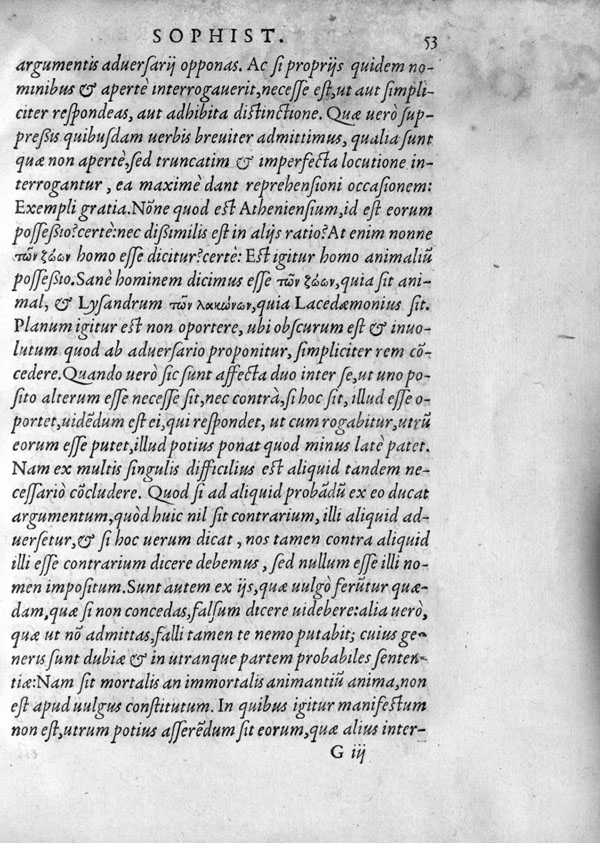 SOPHIST. 53
argumentis aduersarij opponas. Ac si proprijs quidem no-
minibus & apertè interrogauerit, necesse est, ut aut simpli-
citer respondeas, aut adhibita distinctione. Quæ uerò sup-
pressis quibusdam uerbis breuiter admittimus, qualia sunt
quæ non apertè, sed truncatim & imperfecta locutione in-
terrogantur, ea maximè dant reprehensioni occasionem:
Exempli gratia. Nõne quod est Atheniensium, id est eorum
possessio? certè: nec dissimilis est in alijs ratio? At enim nonne
τῶν ζώων homo esse dicitur? certè: Est igitur homo animaliũ
possessio. Sanè hominem dicimus esse τῶν ζώων, quia sit ani-
mal, & Lysandrum τῶν λακώνων, quia Lacedæmonius sit.
Planum igitur est non oportere, ubi obscurum est & inuo-
lutum quod ab aduersario proponitur, simpliciter rem cõ-
cedere. Quando uerò sic sunt affecta duo inter se, ut uno po-
sito alterum esse necesse sit, nec contrà, si hoc sit, illud esse o-
portet, uidẽdum est ei, qui respondet, ut cum rogabitur, utrũ
eorum esse putet, illud potius ponat quod minus latè patet.
Nam ex multis singulis difficilius est aliquid tandem ne-
cessariò cõcludere. Quod si ad aliquid probãdũ ex eo ducat
argumentum, quòd huic nil sit contrarium, illi aliquid ad-
uersetur, & si hoc uerum dicat, nos tamen contra aliquid
illi esse contrarium dicere debemus, sed nullum esse illi no-
men impositum. Sunt autem ex ijs, quæ uulgò ferũtur quæ-
dam, quæ si non concedas, falsum dicere uidebere: alia uerò,
quæ ut nõ admittas, falli tamen te nemo putabit; cuius ge-
neris sunt dubiæ & in utranque partem probabiles senten-
tiæ: Nam sit mortalis an immortalis animantiũ anima, non
est apud uulgus constitutum. In quibus igitur manifestum
non est, utrum potius asserẽdum sit eorum, quæ alius inter-
G iij